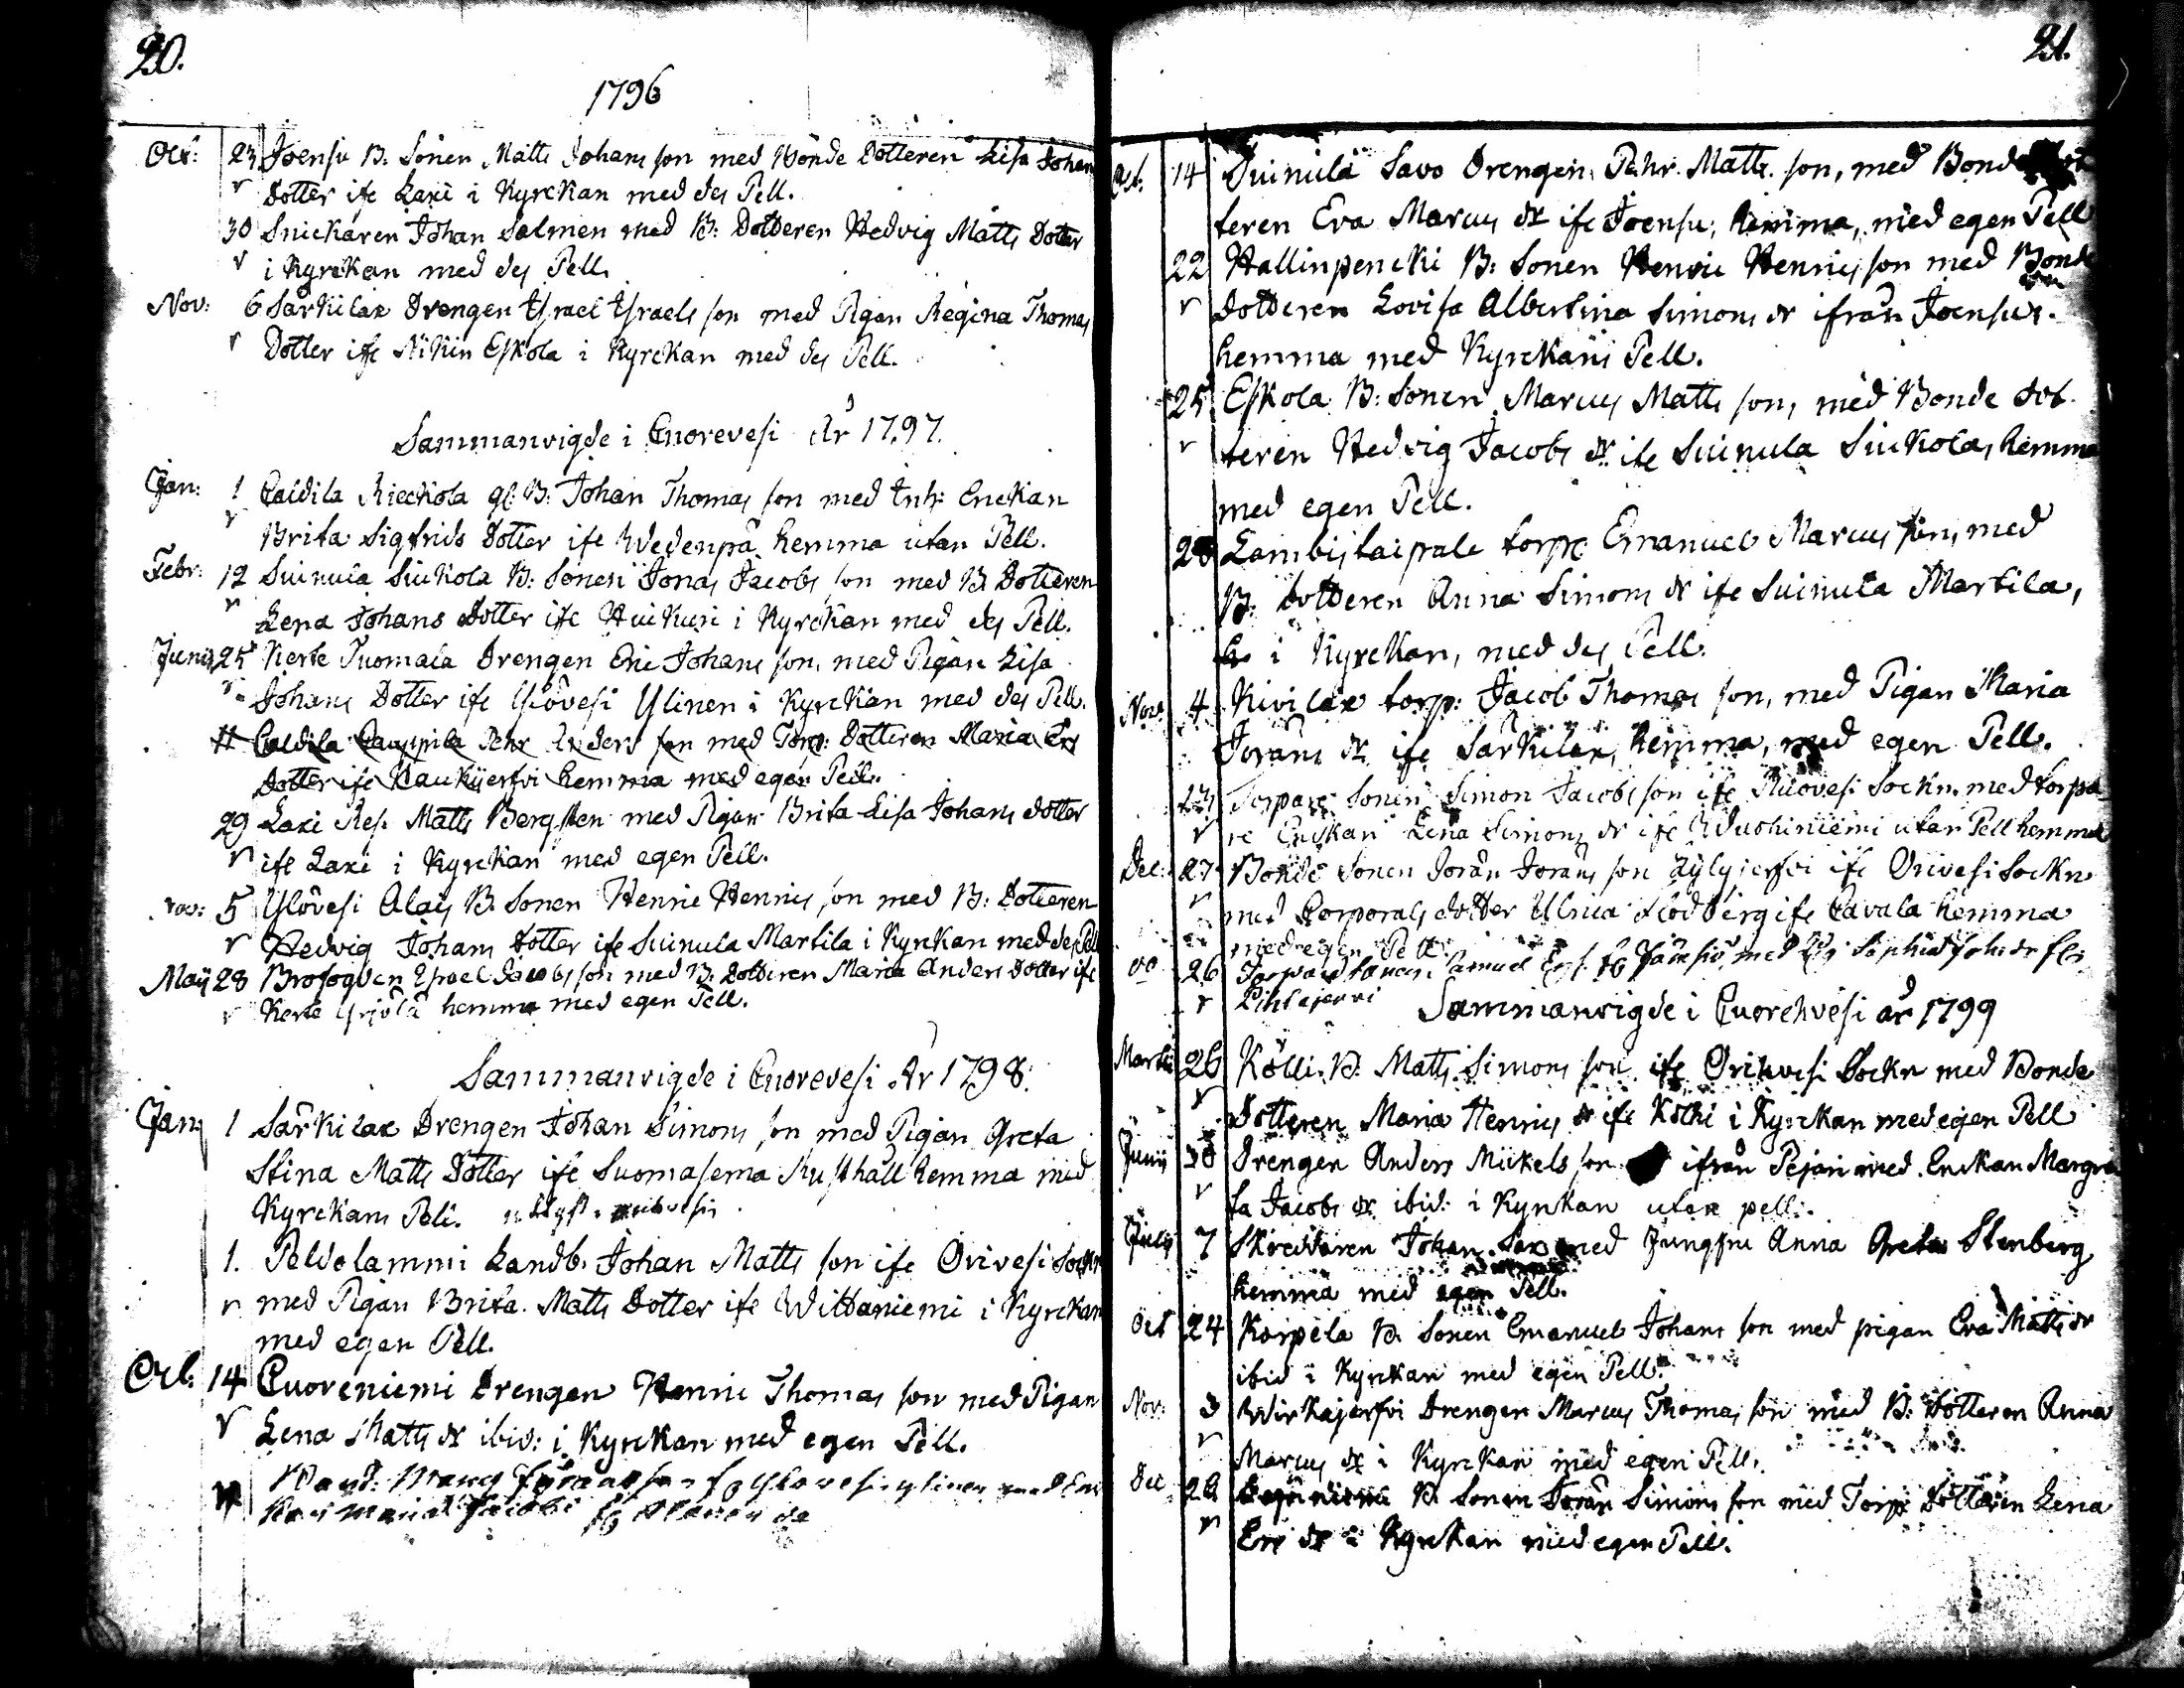 20.
1796
Oct: 23 Joensu B: Sonen Matts Johans son med Bonde Dotteren Lisa Johans
Dotter ifr Laxi i Kyrckan med des Pell.
30 Snickaren Johan Salmen med B: Dotteren Hedvig Matts Dotter
i Kyrckan med des Pell.
Nov: 6 Särkilax Drengen Israel Israels son med Pigan Regina Thomas
Dotter ifr Eskola i Kyrckan med des Pell.
Sammanvigde i Cuorevesi År 1797.
Jan: 1 Caldila Rieckola gl: B: Johan Thomas son med Inh: Enckan
Brita Sigfrids Dotter ifr Wedenpä hemma utan Pell.
Febr: 12 Suinula Siukola B: Sonen Jonas Jacobs son med B. Dotteren
Lena Johans Dotter ifr Huikuri i Kyrckan med des Pell.
Junii 25 Kerte Tuomala Drengen Eric Johans son, med Pigan Lisa
Johans Dotter ifr Ylövesi Ylinen i Kyrckan med des Pell.
11 Caldila Cauppila Pehr Anders son med Torp: Dotteren Maria Ers
Dotter ifr Haukijerfvi hemma med egen Pell.
29 Laxi Res. Matts Bergsten med Pigan Brita Lisa Johans dotter
ifr Laxi i Kyrckan med egen Pell.
Nov: 5 Ylövesi Alais B. Sonen Henric Henrics son med B: Dotteren
Hedvig Johans Dotter ifr Suinula Martila i Kyrckan med des Pell
Maij 28 Brofogden Israel Jacobs son med B. Dotteren Maria Anders Dotter ifr
Kerte Yrjölä hemma med egen Pell.
Sammanvigde i Cuorevesi År 1798.
Jan: 1 Särkilax Drengen Johan Simons son med Pigan Greta
Stina Matts Dotter ifr Suomasema Rusthåll hemma med
Kyrckans Pell.
1. Peldolammi Landb: Johan Matts son ifr Orivesi Sockn
med Pigan Brita Matts Dotter ifr Wittaniemi i Kyrckan
med egen Pell.
Oct: 14 Cuoreniemi Drengen Henric Thomas son med Pigan
Lena Matts dr ibid: i Kyrckan med egen Pell.
21.
Oct. 14 Suinula Savo Drengen Pehr Matts son, med Bonde Dot
teren Eva Marcus dr ifr Joensu, hemma, med egen Pell
22 Hallinpencki B: Sonen Henric Henrics son med Bonde
Dotteren Lovisa Albertina Simons dr ifrån Joensu.
hemma med Kyrckans Pell.
25 Eskola B: Sonen Marcus Matts son, med Bonde dot
teren Hedvig Jacobs dr ifr Suinula Siukola, hemma
med egen Pell.
28 Lambistaipale torp: Emanuel Marcus son, med
B: dotteren Anna Simons dr ifr Suinula Martila,
i Kyrckan, med des Pell.
Nov: 4 Kivilax torp: Jacob Thomas son, med Pigan Maria
Jörans dr ifr Särkilax, hemma, med egen Pell.
23 Torpare Sonen Simon Jacobs son ifr Ruovesi Sockn, med torpa
re Enckan Lena Simons dr ifr Wuohiniemi utan Pell hemma
Dec: 27 Bonde Sonen Jöran Jörans son ifr Orivesi Sockn
med Corporals dotter Ulrica Flodberg ifr Cavala hemma
med egen Pell.
26 Torpare sonen Samuel
Pihlajervi
Sammanvigde i Cuorehvesi år 1799
Martii 26 Kolli B. Matts Simons son ifr Orihvesi Sockn med Bonde
Dotteren Maria Henrics dr ifr Kolhi i Kyrckan med egen Pell
Junii 30 Drengen Anders Mickels son ifrån Pejari med Enckan Margre
ta Jacobs dr ibid: i Kyrckan utan pell.
July 7 Skreddaren Johan Sax med Jungfru Anna Greta Stenberg
hemma med egen Pell.
Oct 24 Korpela B. Sonen Emanuel Johans son med pigan Eva Matts dr
ibid i Kyrckan med egen Pell.
Nov: 3 Wirkajerfvi Drengen Marcus Thomas son med B: Dotteren Anna
Marcus dr i Kyrckan med egen Pell.
Dec 26 B. Sonen Jöran Simons son med Torp: Dotteren Lena
Ers dr i Kyrckan med egen Pell.